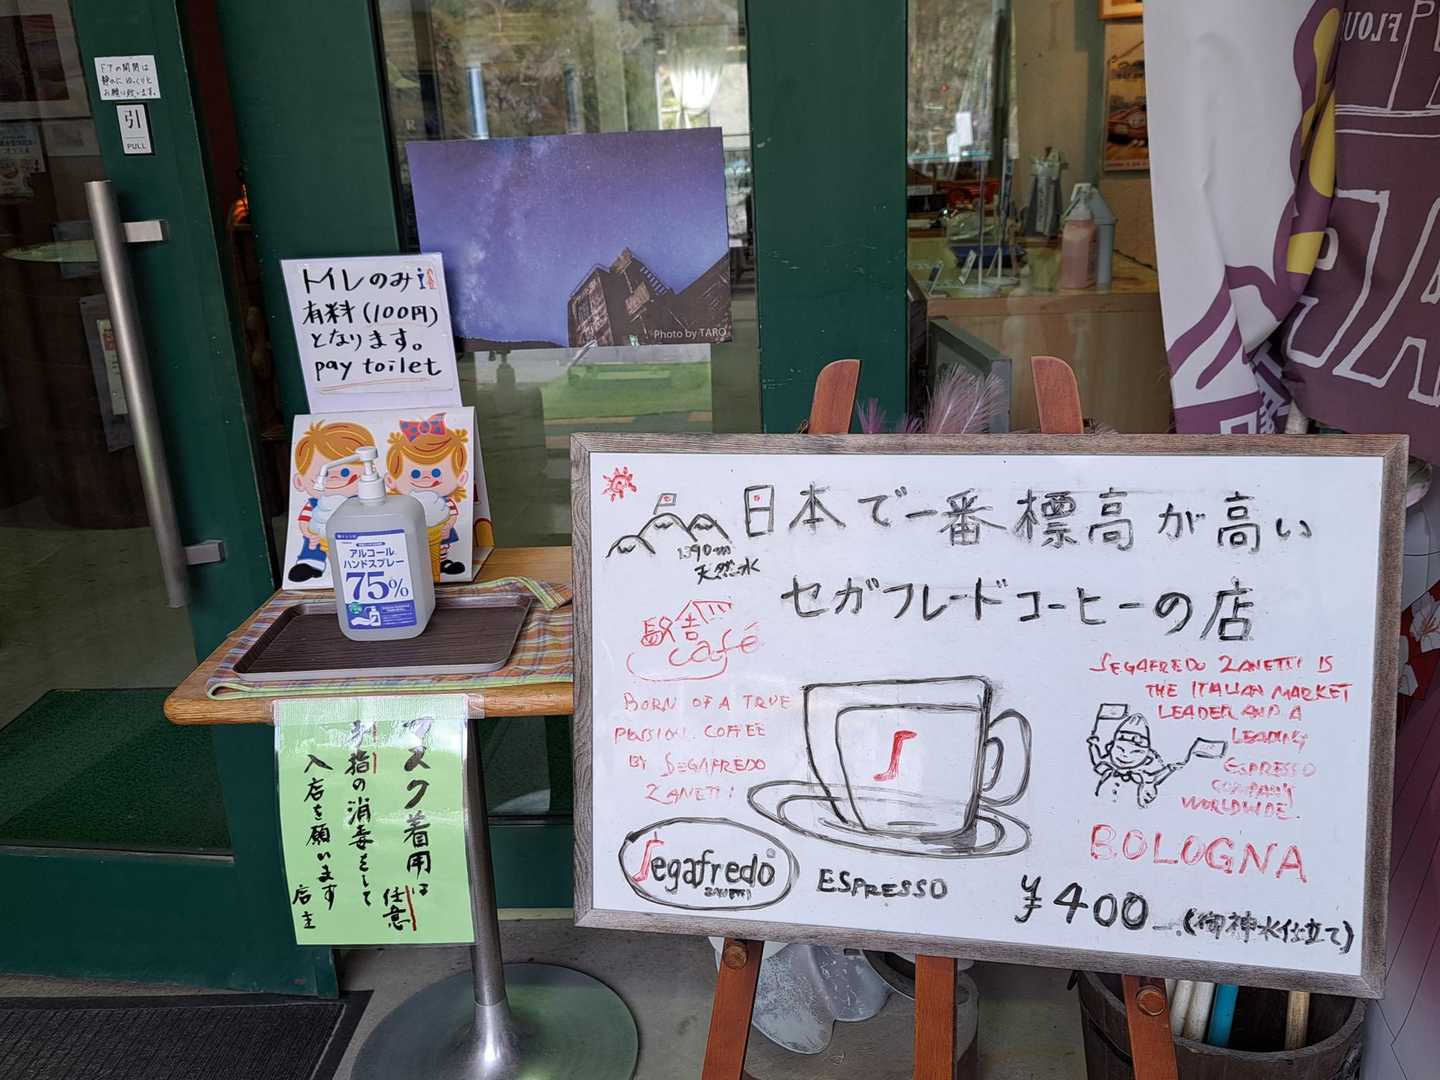 ドアの開閉は
静かに ゆっくりと
お願い致します。
引
PULL
トイレのみ
有料(100円)
となります。
pay toilet
Photo by TARO
アルコール
ハンドスプレー
75%
マスク着用は
任意
手指の消毒をして
入店を願います
店主
日本で一番標高が高い
1390m
天然水
セガフレードコーヒーの店
駅舎
café
BORN OF A TRUE
PASSION. COFFEE
BY SEGAFREDO
ZANETTI
SEGAFREDO ZANETTI IS
THE ITALIAN MARKET
LEADER AND A
LEADING
ESPRESSO
COMPANY
WORLDWIDE.
BOLOGNA
Segafredo
ZANETTI
ESPRESSO
¥400
(御神水仕立て)